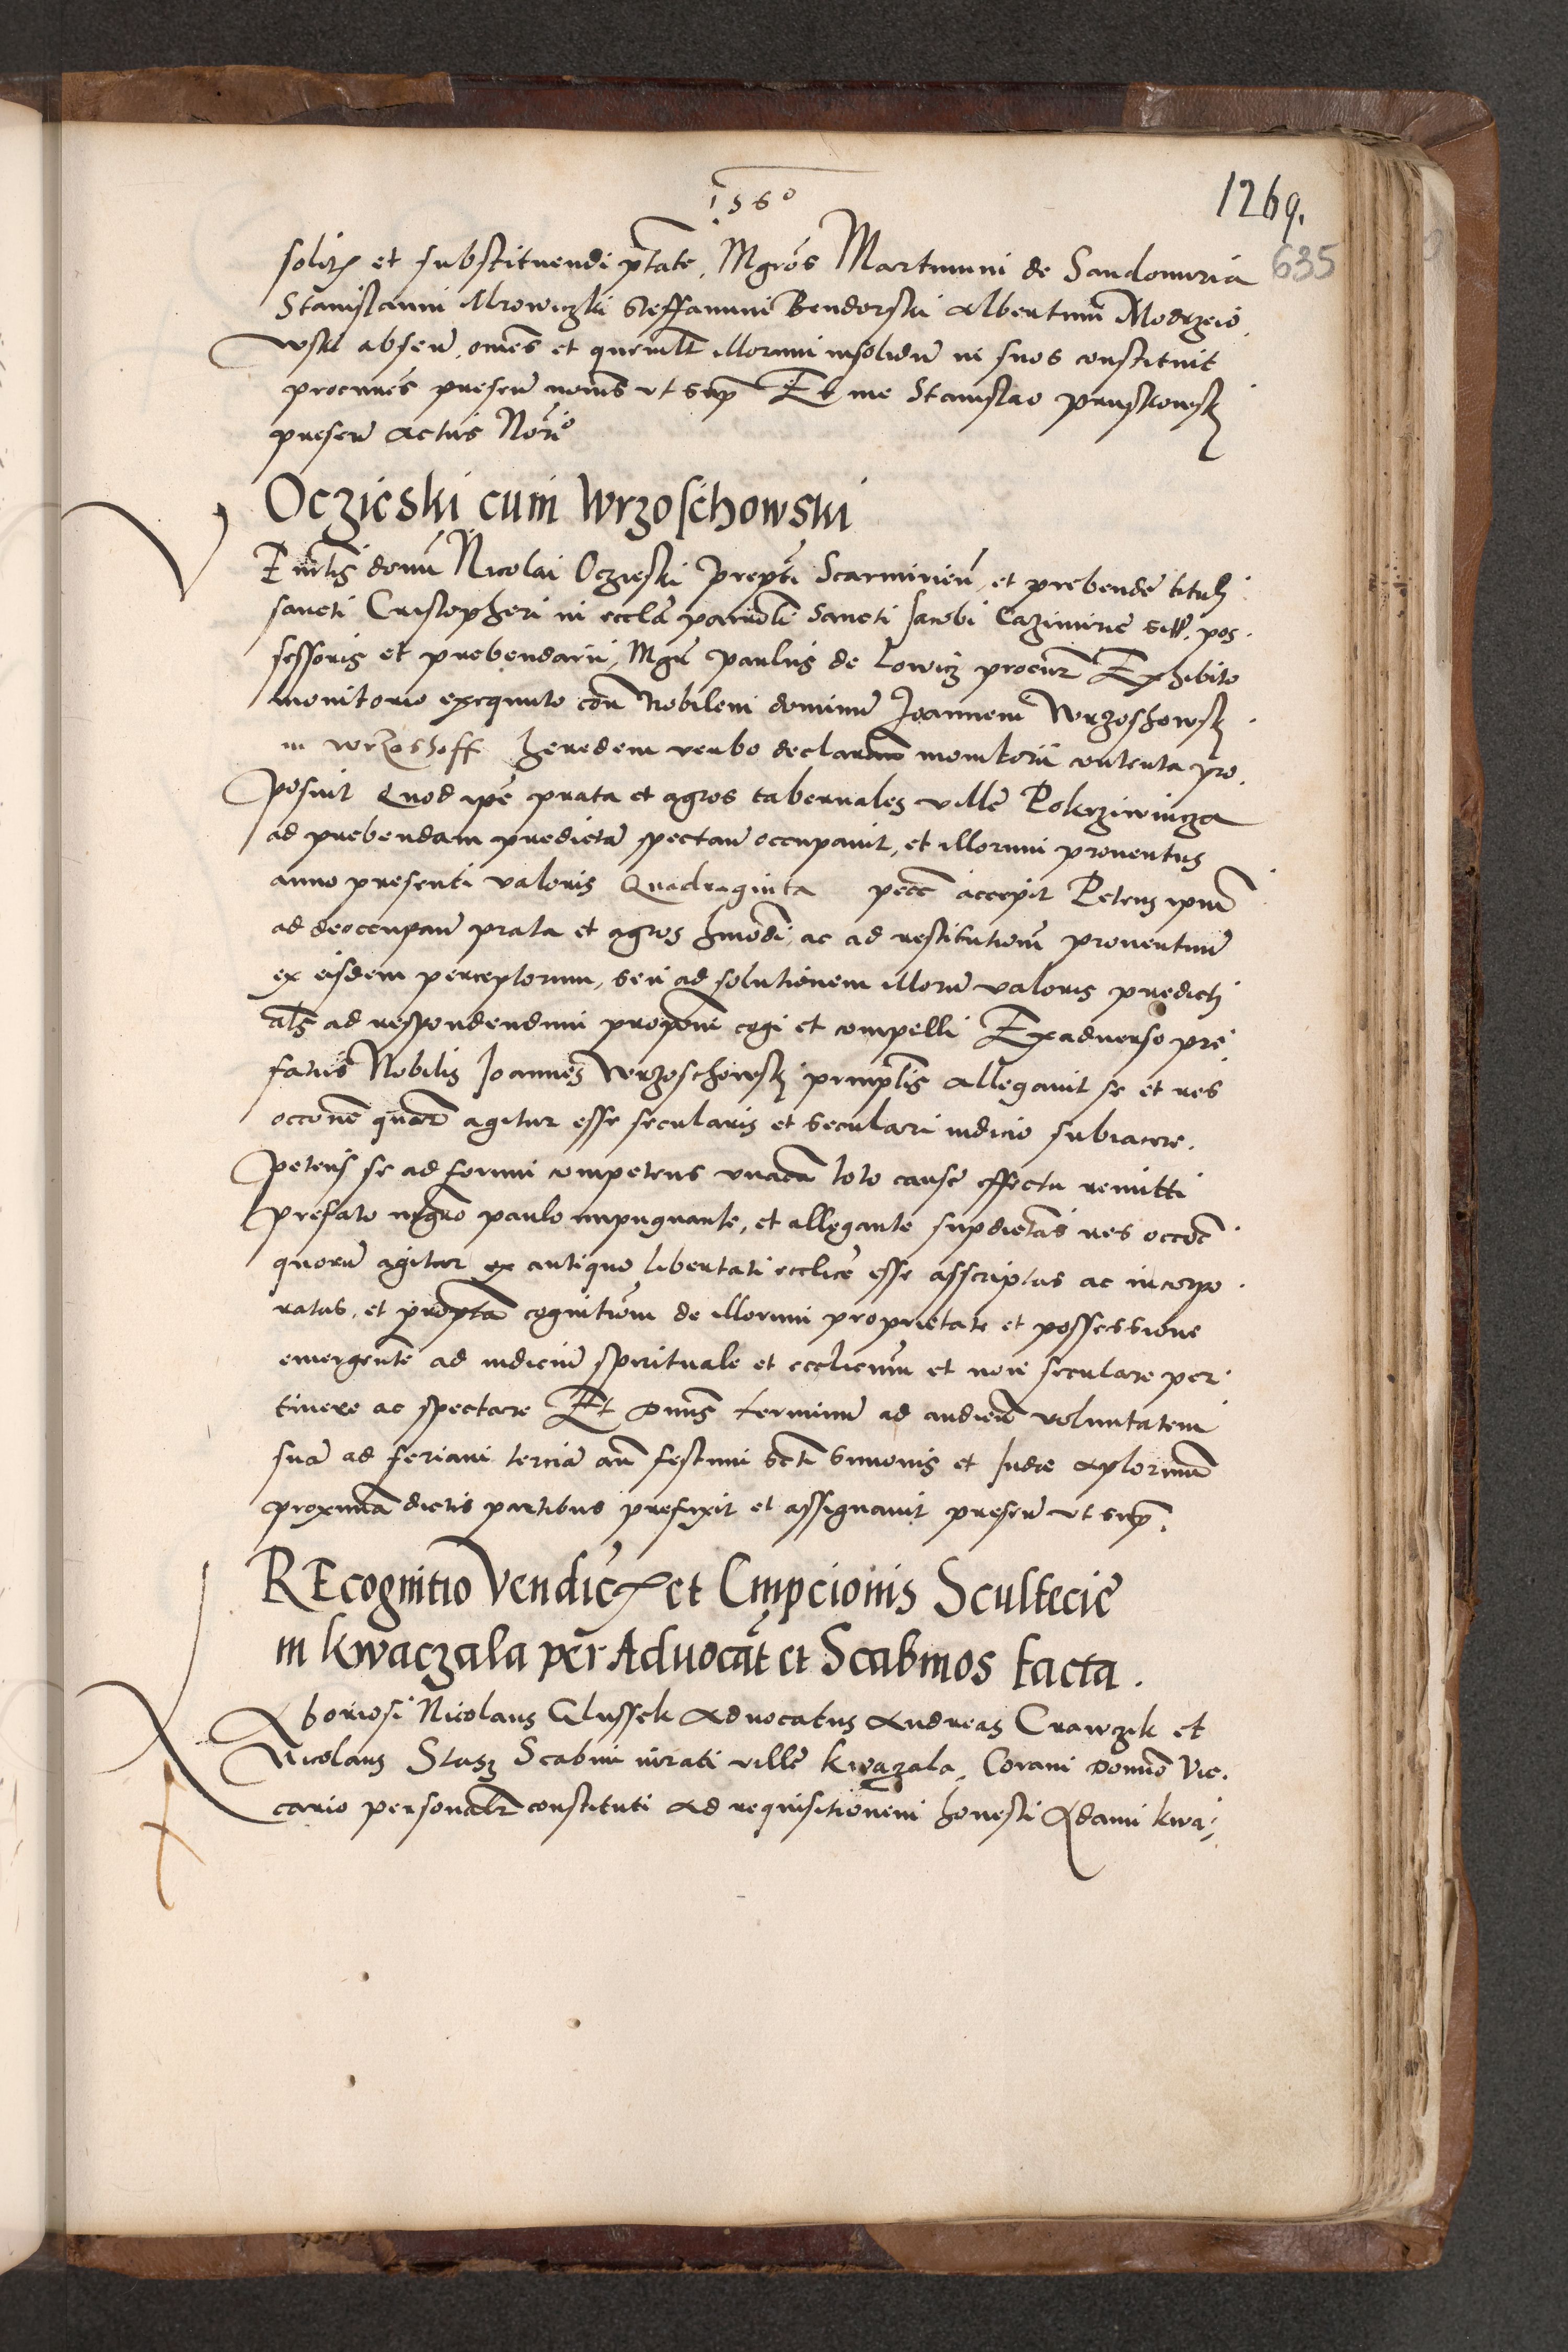 1560
1269.
635
solitis et substituendi ptāte, Mgros Martinum de Sandomiria
Stanislaum Mrowiczki Steffanum Bendorski Albertum Modrzeio
wski absen̄. om̄es et quemlt̄ illorum insolidū in suos constituit
procur̄es presen̄ nōīs ut sup̄ Et me Stanislao pruskowsky
presen̄ actus Notrio
Oczieski cum Wrzoschowski
dom̄ Nicolai Oczieski prepti Scarmirien̄, et prebende tituly
sancti Cristopheri in eccl̄a parrol̄i Sancti Jacobi Cazimirie sitē, pos.
sessoris et prebendarii, Mgr̄ paulus de Lowicz procur̄ Exhibito
monitorio exequuto con̄ Nobilem dominū Joannem Wrzoshowsky
in wrzoshoff heredem verbo declaran̄ monitorii contenta pro.
posuit Quod ip̄e prata et agros tabernales ville Pokrziwincza
ad prebendam predictā spectan̄ occupavit, et illorum proventus
anno presenti valoris Quadraginta accepit Petens ip̄um
ad deoccupan̄ prata et agros hmōdi, ac ad restitutionem proventuū
ex eisdem perceptorum, seu ad solutionem illorū valoris predicti
al̄s ad respondendum cogi et compelli Exadverso pre
fatus Nobilis Joannes Wrzoschowsky allegavit se et res
occōne quar̄ agitur esse secularis et seculari iudicio subiacere.
petens se ad forum competens unacū toto cause effectu remitti
prefato mgro paulo impugnante, et allegante supdictas res occōe
quorū agitur ex antiquo libertati ecclīce esse asscriptas ac incorpo.
ratas, et cognitionem de illorum proprietate et possessione
emergente ad iudiciū spirituale et eccliēum et non seculare per.
tinere ac spectare Et Dn̄us terminū ad audien̄ voluntatem
suā ad feriam terciā an̄ festum Scti Simonis et Jude aplorum
proximā dictis partibus prefixit et assignavit presen̄ ut sup̄.
REcognitio Vendic̄is et Empcionis Scultecie
in Kwaczala per Advocat et Scabinos facta.
Laboriosi Nicolaus Glussek Advocatus Andreas Crawczik et
Nicolaus Stasz Scabini iurati ville Kwaczala, Coram Domīo Vic.
cario personalr̄ constituti Ad requisitionem honesti Adami kwa,